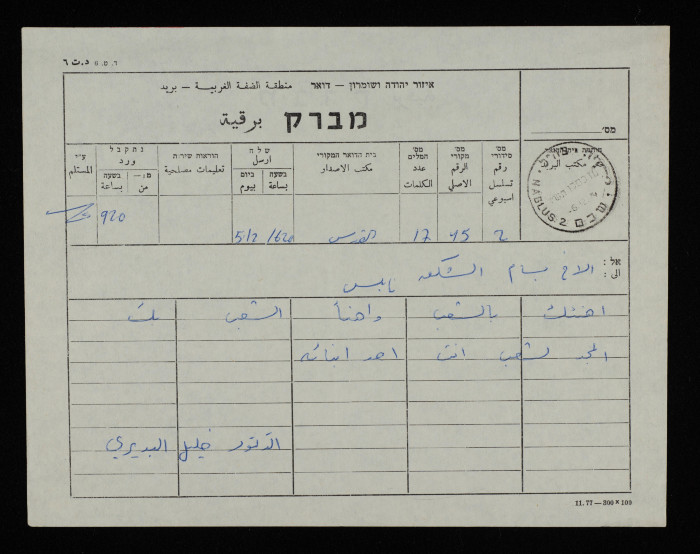 איזור יהודה ושומרון – דואר منطقة الضفة الغربية – بريد
מברק برقية
מס׳
ע״י
المستلم
נתקבל
ورد
מ:– من
בשעה بساعة
הוראות שירות
تعليمات مصلحية
שלח
ارسل
ביום بيوم
בשעה بساعة
בית הדואר המקורי
مكتب الاصدار
מס׳ המלים
عدد الكلمات
מס׳ מקורי
الرقم الاصلي
מס׳ סידורי
رقم تسلسل اسبوعي
مكتب البريد
NABLUS 2 שכם
920
5/2 1620 القدس 17 45 2
אל: الى: الاخ بسام الشكعه نابلس
اهنئك بالشعب واهنأ الشعب بك
المجد لشعب انت احد ابنائه
الدكتور خليل البديري
11.77—300×100